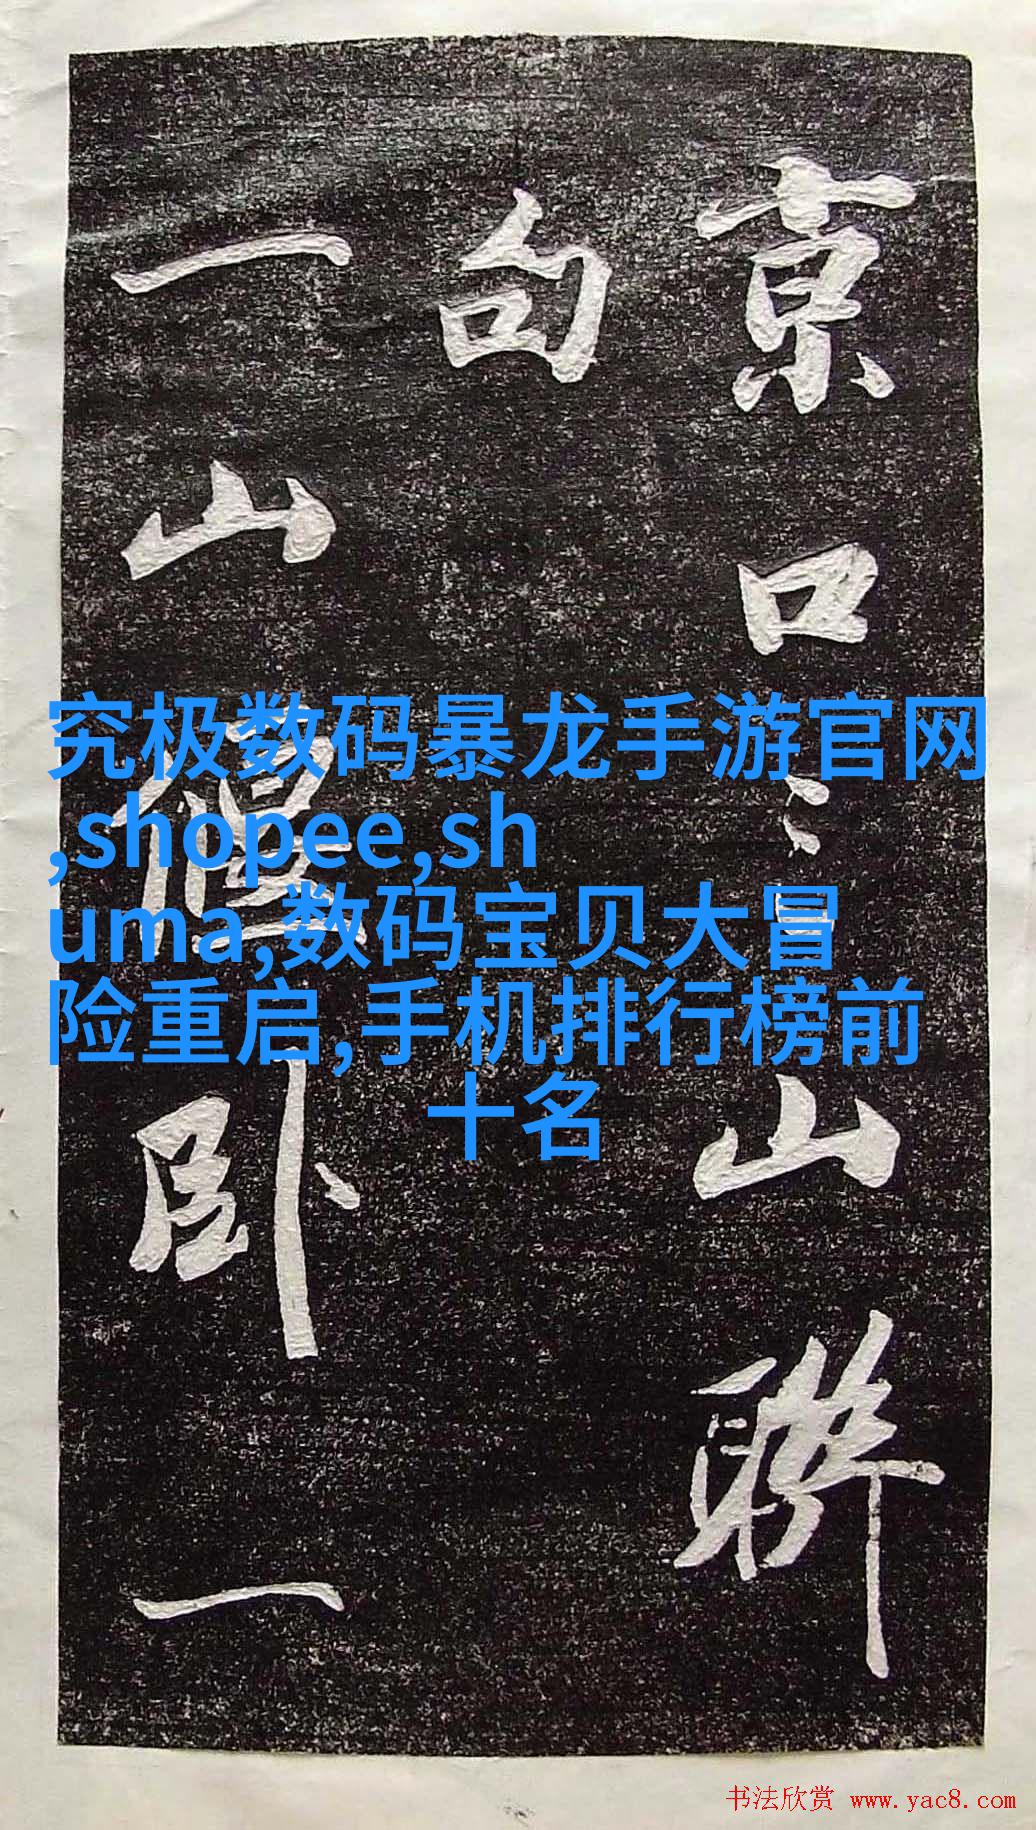 京口山聯
句
一山偃卧一
究极数码暴龙手游官网
,shopee,sh
uma,数码宝贝大冒
险重启,手机排行榜前
十名
书法欣赏 www.yac8.com